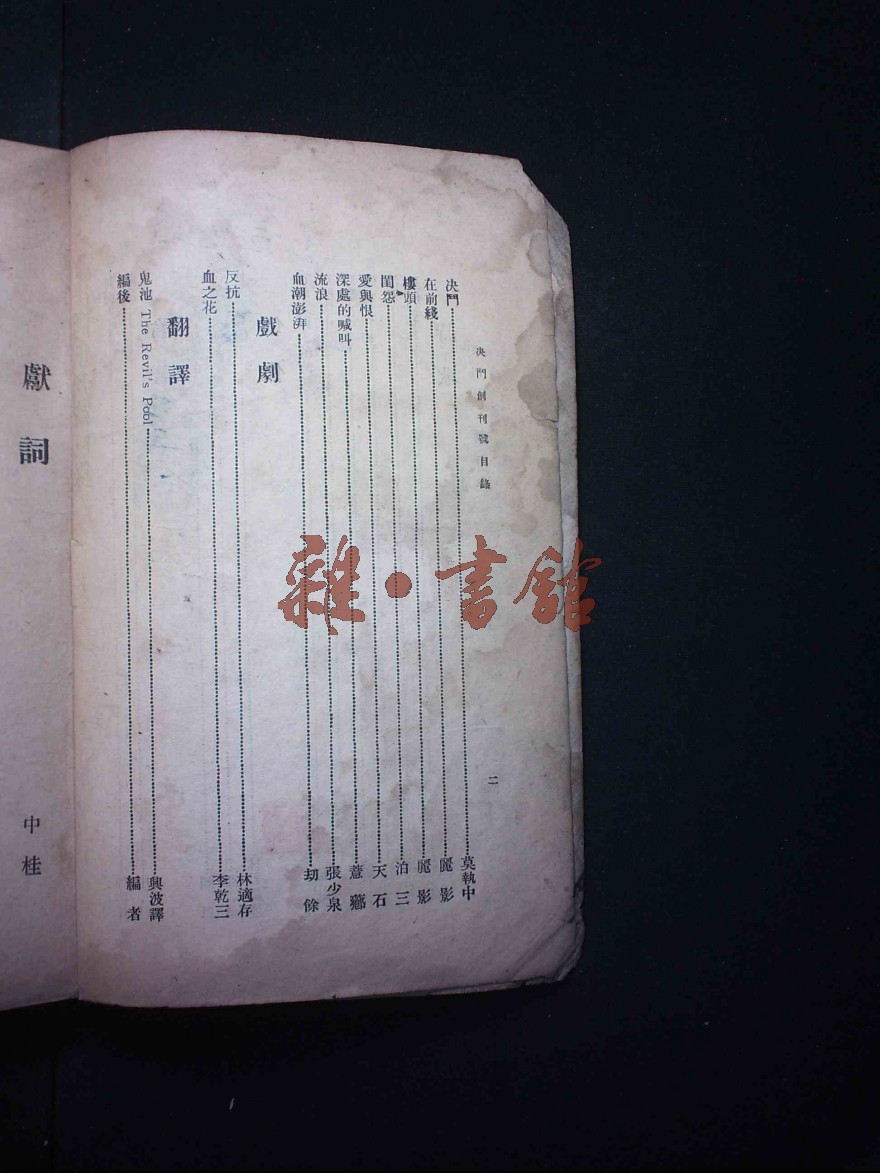 决鬥創刊號目錄
二
决鬥 莫執中
在前綫 麗影
樓頭 麗影
閨怨 泊三
愛與恨 天石
深處的喊叫
流浪 張少泉
血潮澎湃 劫餘
戲劇
反抗 林適存
血之花 李乾三
翻譯
鬼池 The Revil's Pool 興波譯
編後 編者
獻詞
中桂
雜·書館